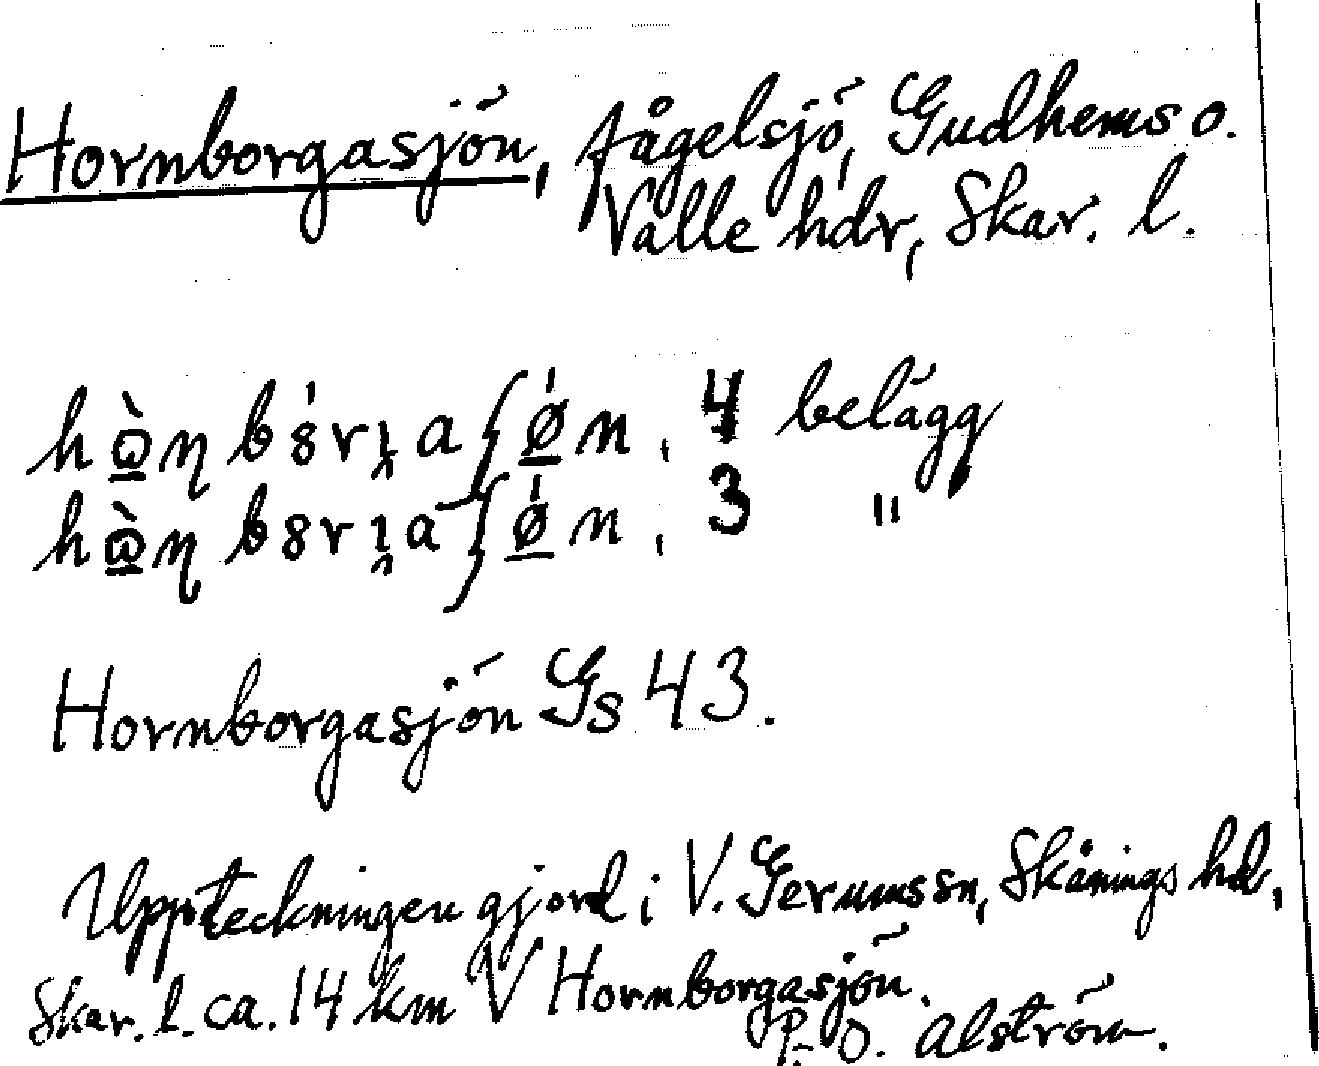 Hornborgasjön, fågelsjö, Gudhems o.
Valle hdr, Skar. l.
4 belägg
3 "
Hornborgasjön Gs 43.
Uppteckningen gjord i V. Gerums sn, Skånings hd,
Skar. l. ca. 14 km V Hornborgasjön.
P. O. Alström.